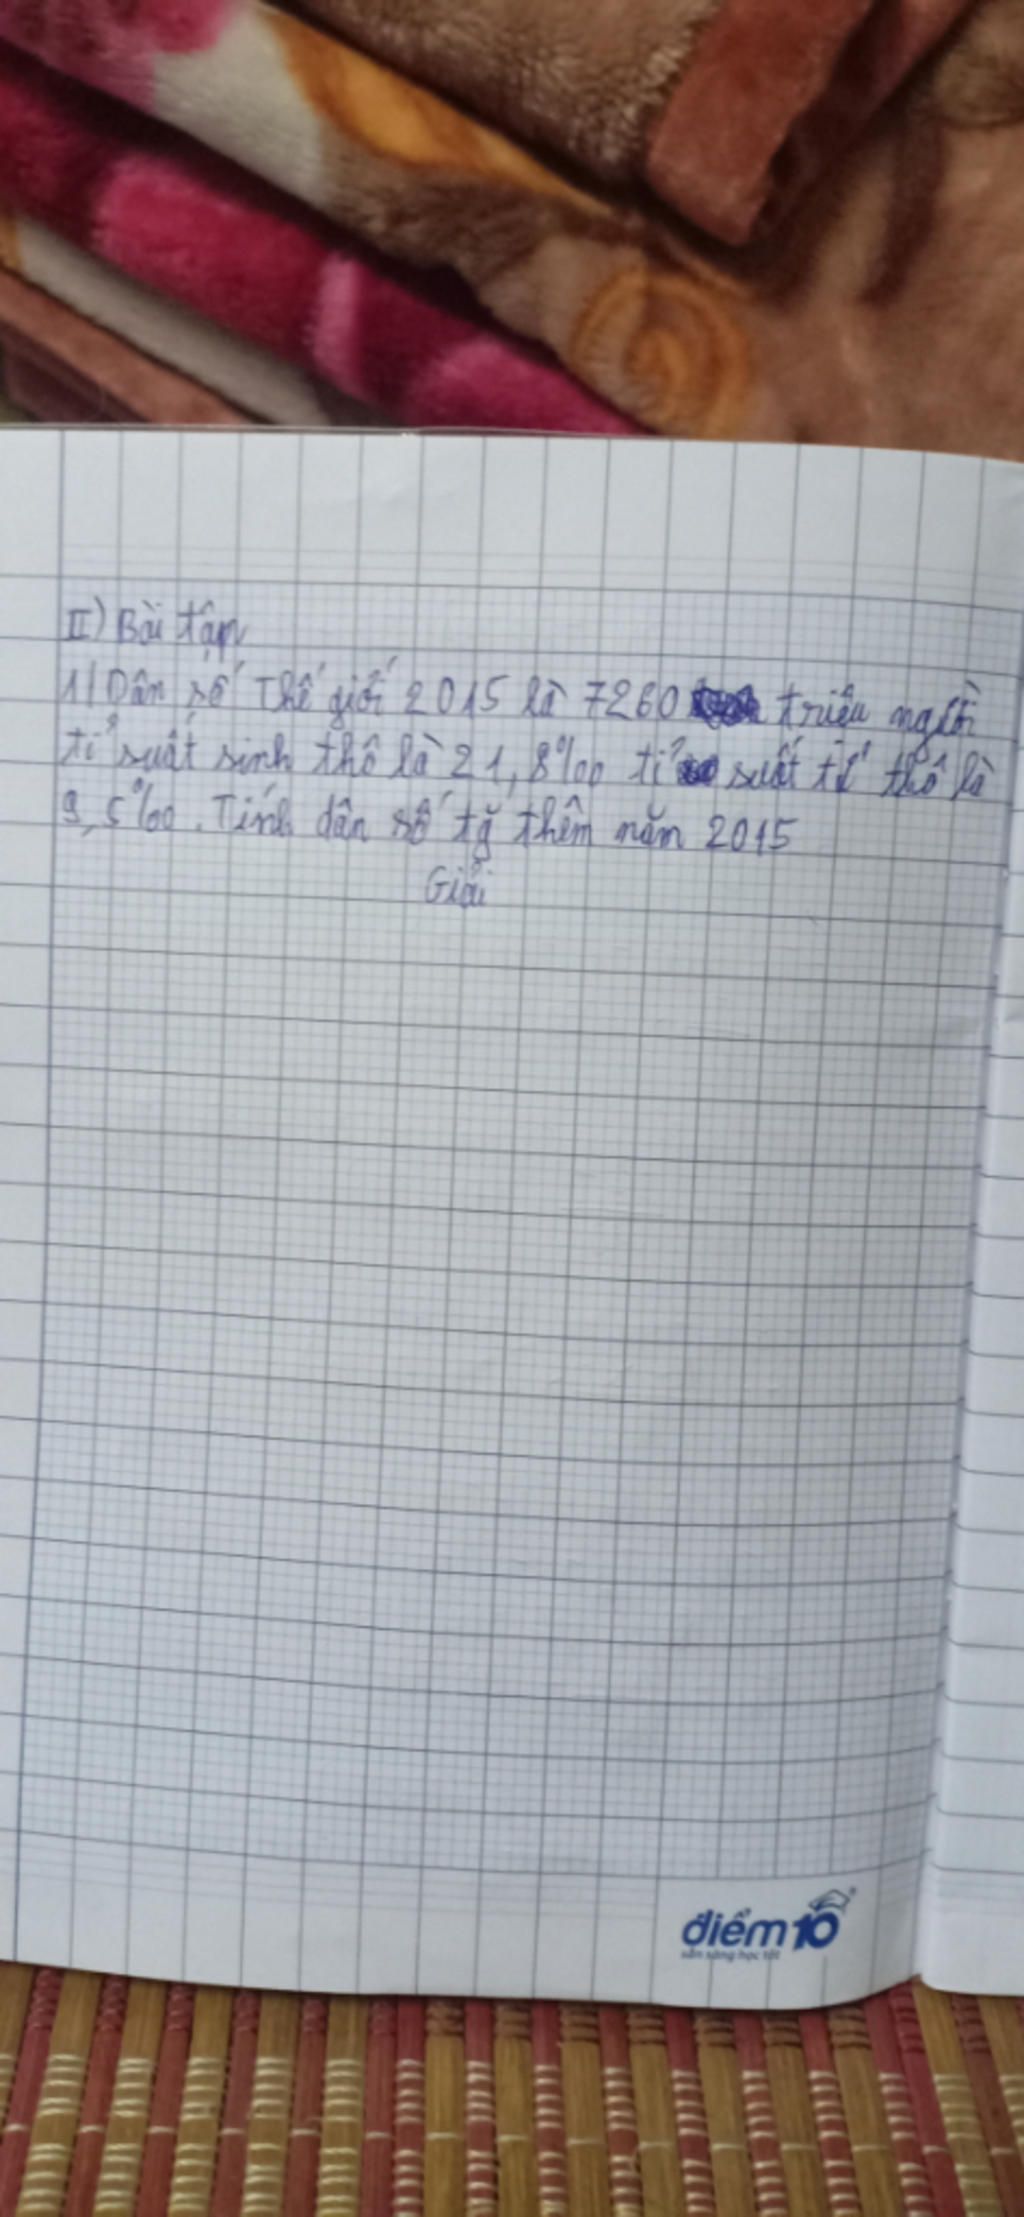 II) Bài tập
1) Dân số Thế giới 2015 là 7260 triệu người
tỉ suất sinh thô là 21,8‰ tỉ suất tử thô là
9,5‰. Tính dân số tg thêm năm 2015
Giải
điểm 10
sẵn sàng học tốt